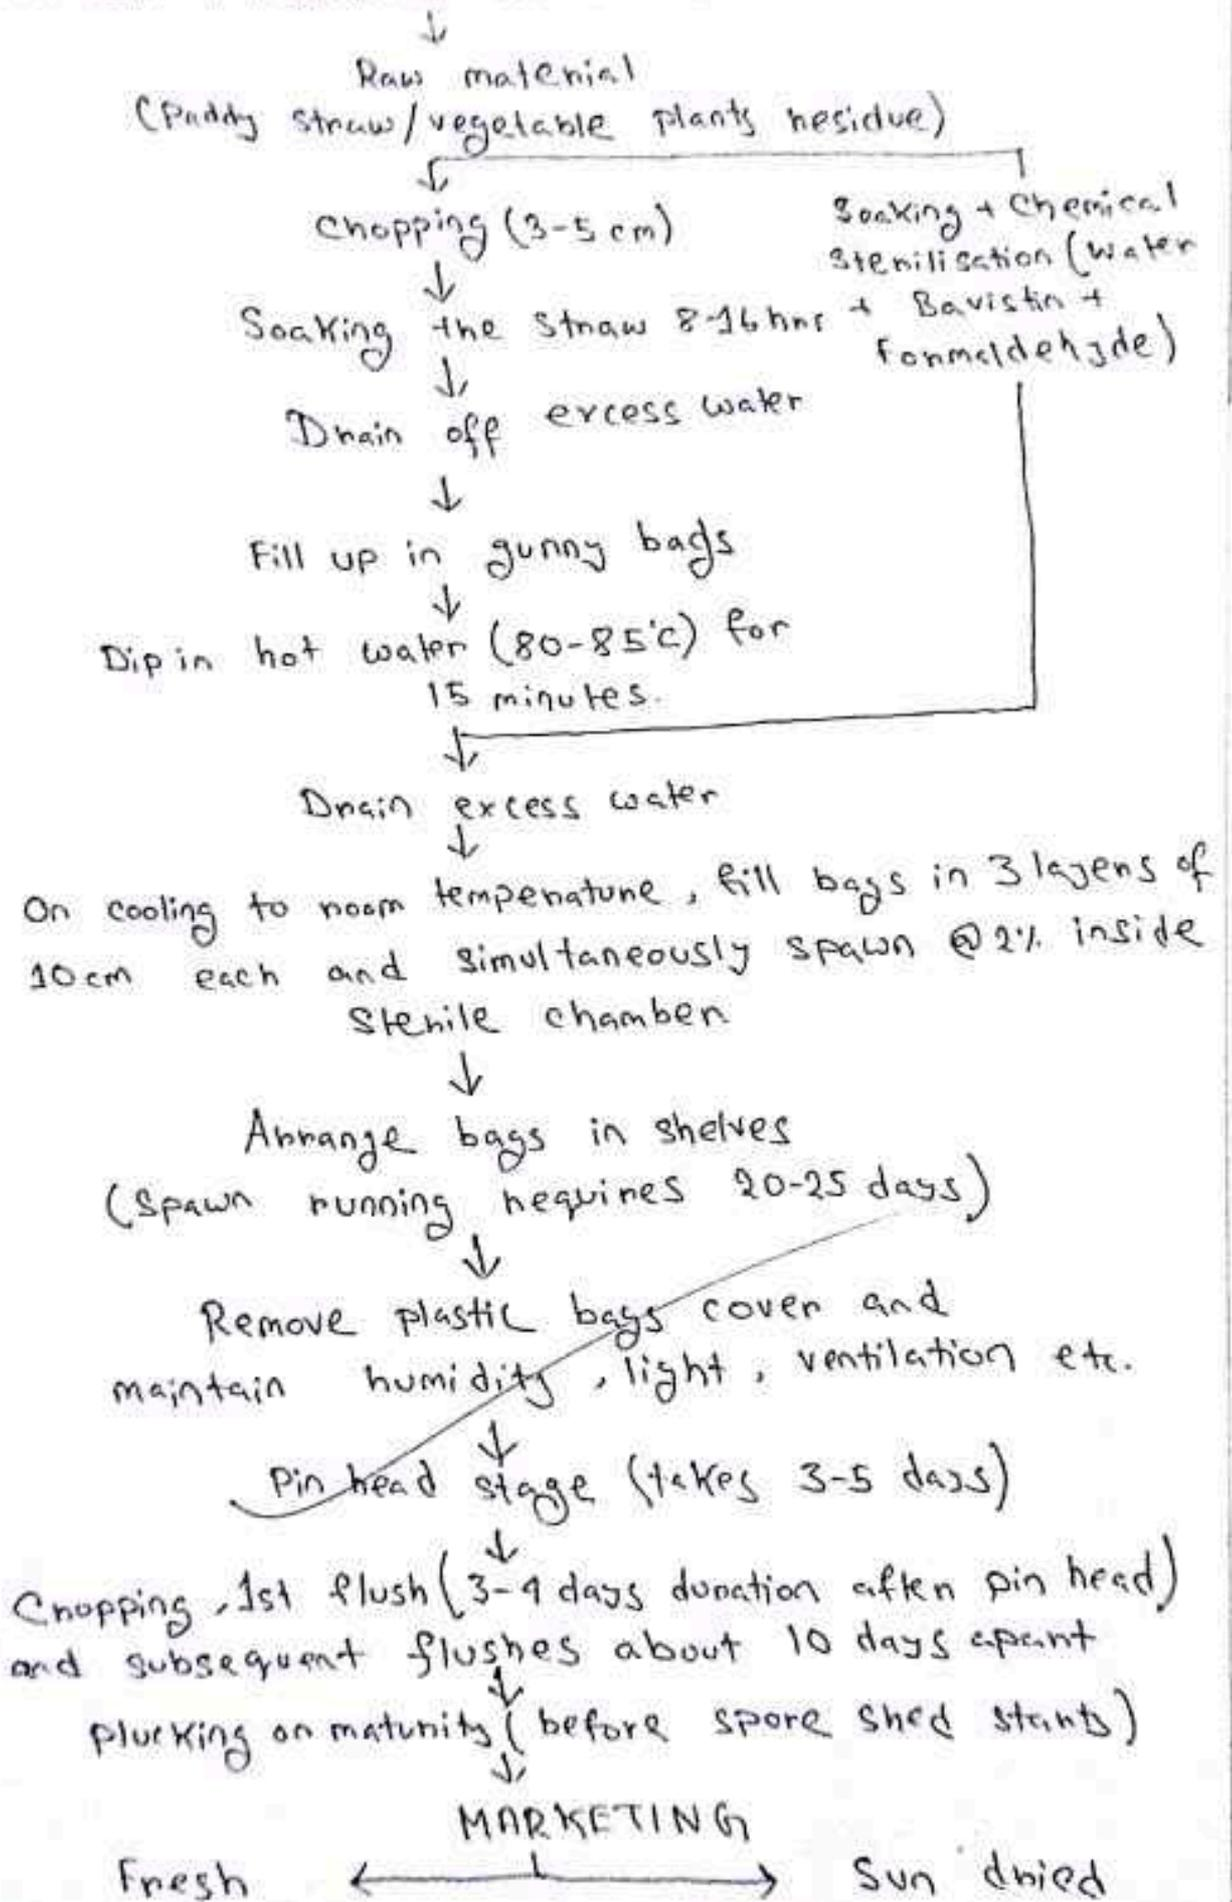 Raw material
(Paddy straw/vegetable plants residue)
Chopping (3-5 cm)
Soaking + Chemical
Sterilisation (Water
Soaking the straw 8-16 hrs + Bavistin +
Formaldehyde)
Drain off excess water
Fill up in gunny bags
Dip in hot water (80-85°C) for
15 minutes.
Drain excess water
On cooling to room temperature, fill bags in 3 layers of
10 cm each and simultaneously spawn @ 2% inside
Sterile chamber
Arrange bags in shelves
(Spawn running requires 20-25 days)
Remove plastic bags cover and
maintain humidity, light, ventilation etc.
Pin head stage (takes 3-5 days)
Cropping, 1st flush (3-4 days duration after pin head)
and subsequent flushes about 10 days apart
plucking on maturity (before spore shed starts)
MARKETING
Fresh Sun dried